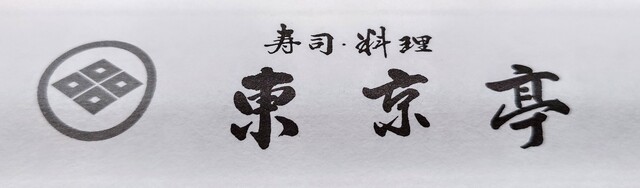 寿司·料理
東京亭